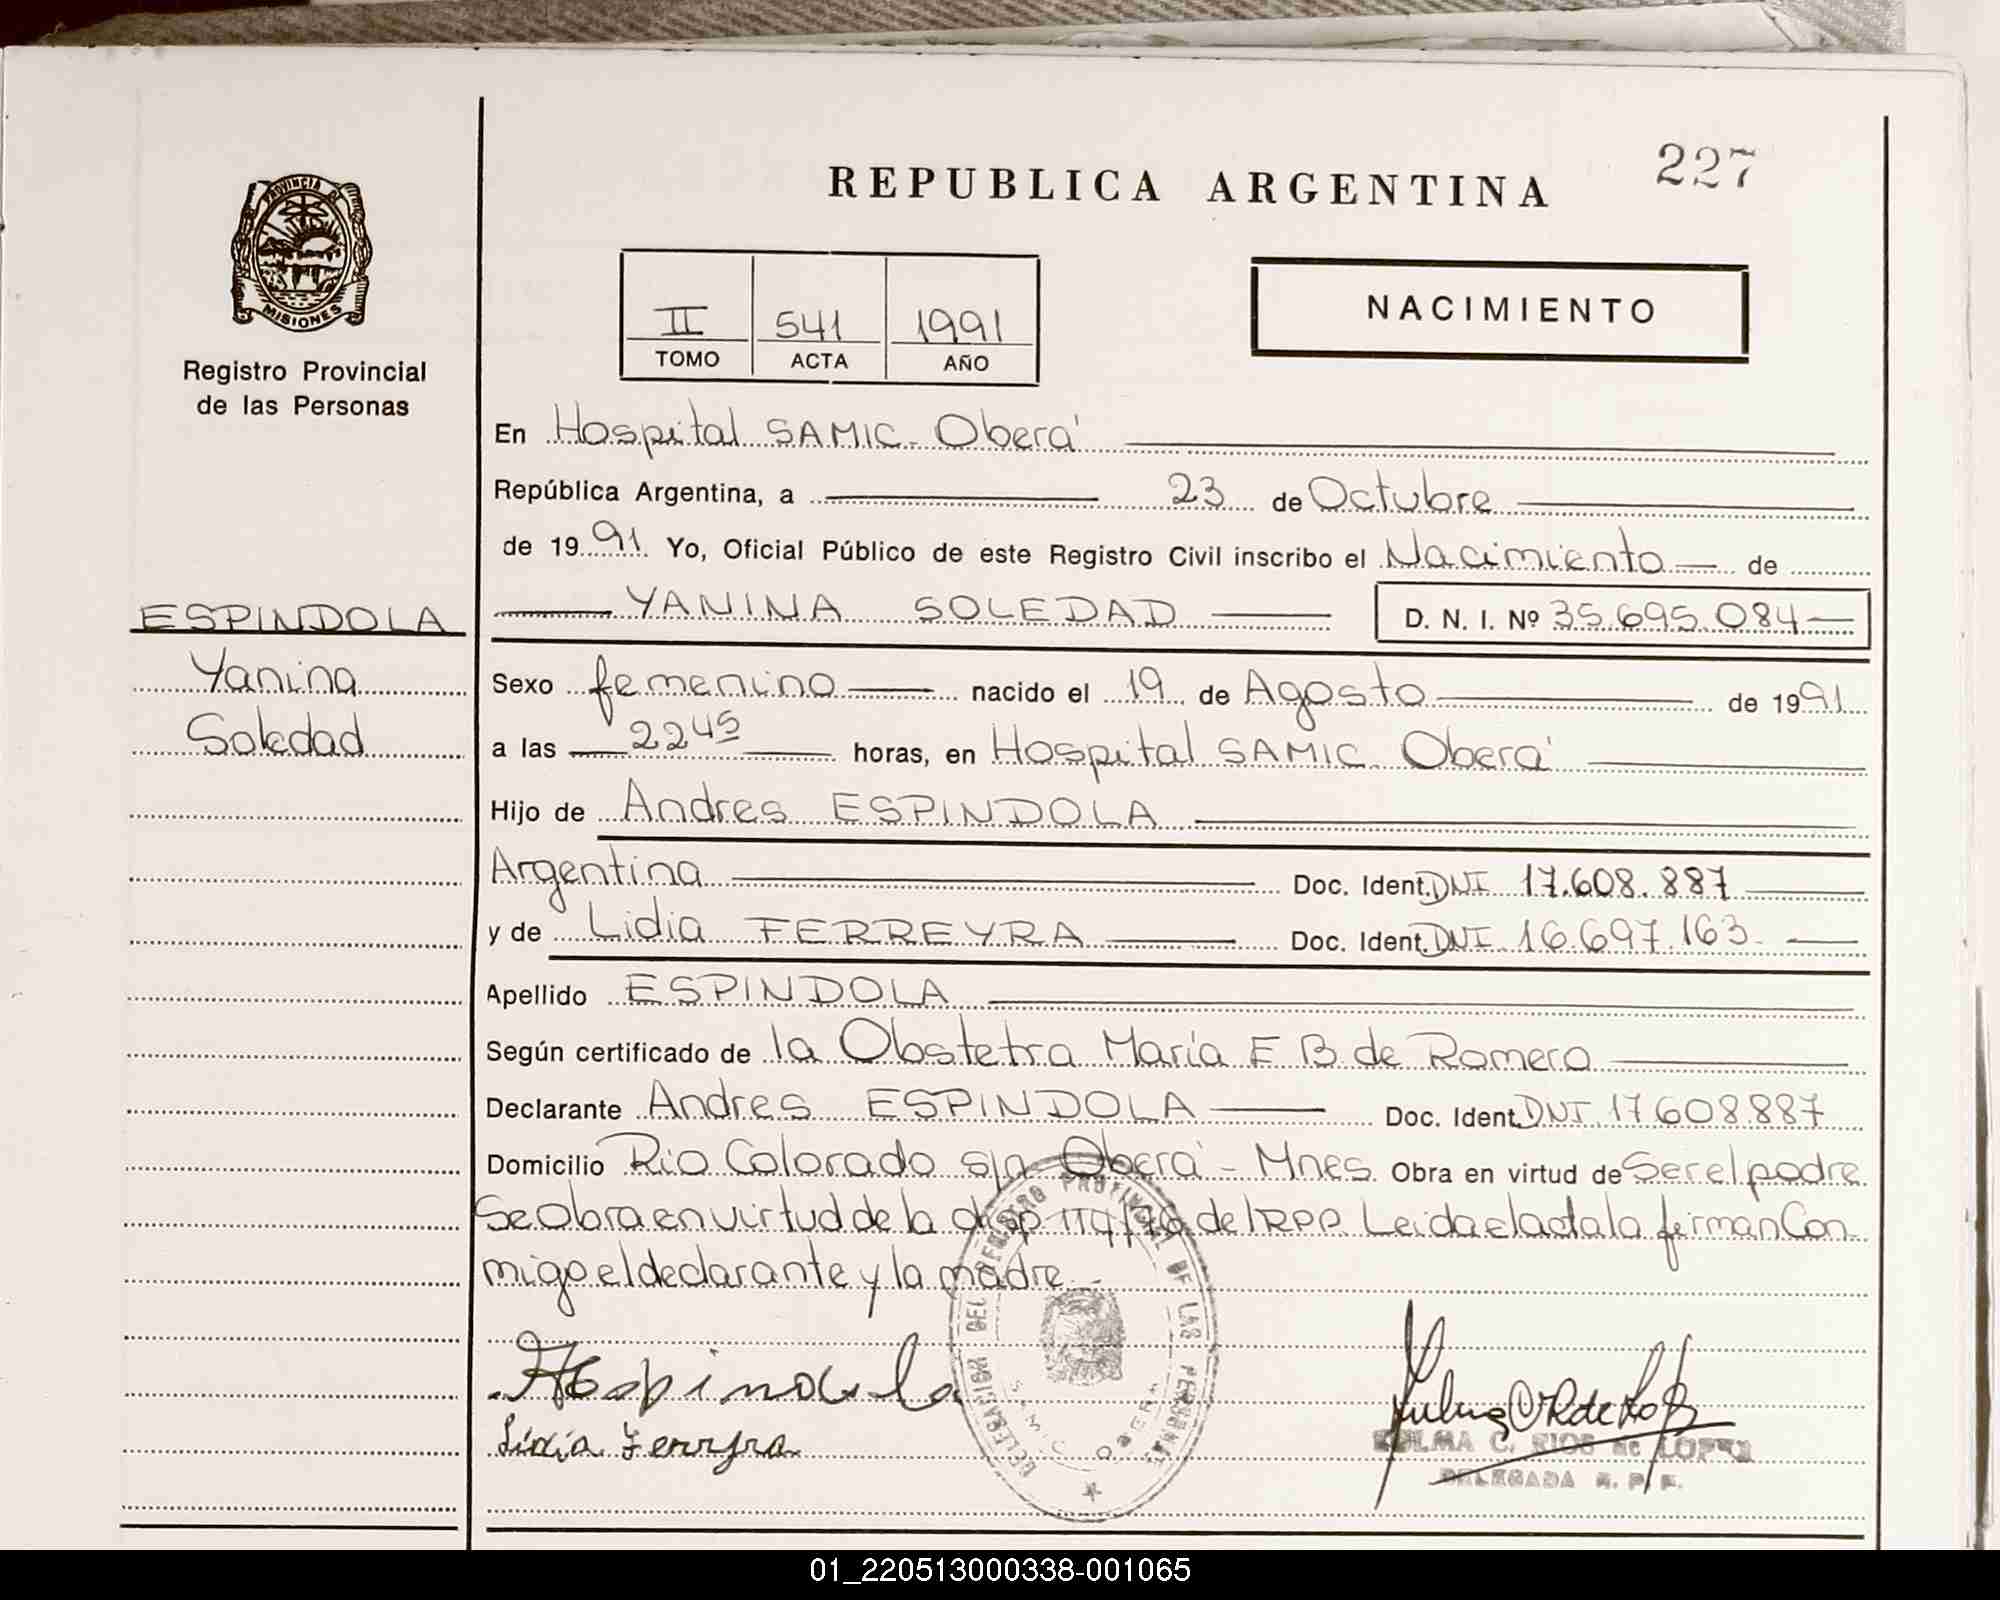 227
REPUBLICA ARGENTINA
PROVINCIA DE
MISIONES
Registro Provincial
de las Personas
II 541 1991
TOMO ACTA AÑO
NACIMIENTO
En Hospital SAMIC - Oberá
República Argentina, a 23 de Octubre
de 1991. Yo, Oficial Público de este Registro Civil inscribo el Nacimiento de
YANINA SOLEDAD D. N. I. Nº 35.695.084
ESPINDOLA
Yanina
Soledad
Sexo femenino nacido el 19 de Agosto de 1991
a las 22 45 horas, en Hospital SAMIC Oberá
Hijo de Andres ESPINDOLA
Argentina Doc. Ident. DNI 17.608.887
y de Lidia FERREYRA Doc. Ident. DNI 16.697.163
Apellido ESPINDOLA
Según certificado de la Obstetra María E B de Romero
Declarante Andres ESPINDOLA Doc. Ident. DNI 17608887
Domicilio Rio Colorado s/n Oberá - Mnes. Obra en virtud de Ser el padre
Se obra en virtud de la disp 119/76 del RPP. Leida el acta la firman Con
migo el declarante y la madre.-
DELEGACION DEL REGISTRO PROVINCIAL DE LAS PERSONAS
SAMIC OBERA
AEspindola
Lidia Ferreyra
ZULMA C. RIOS de LOPEZ
DELEGADA R. P. P.
01_220513000338-001065